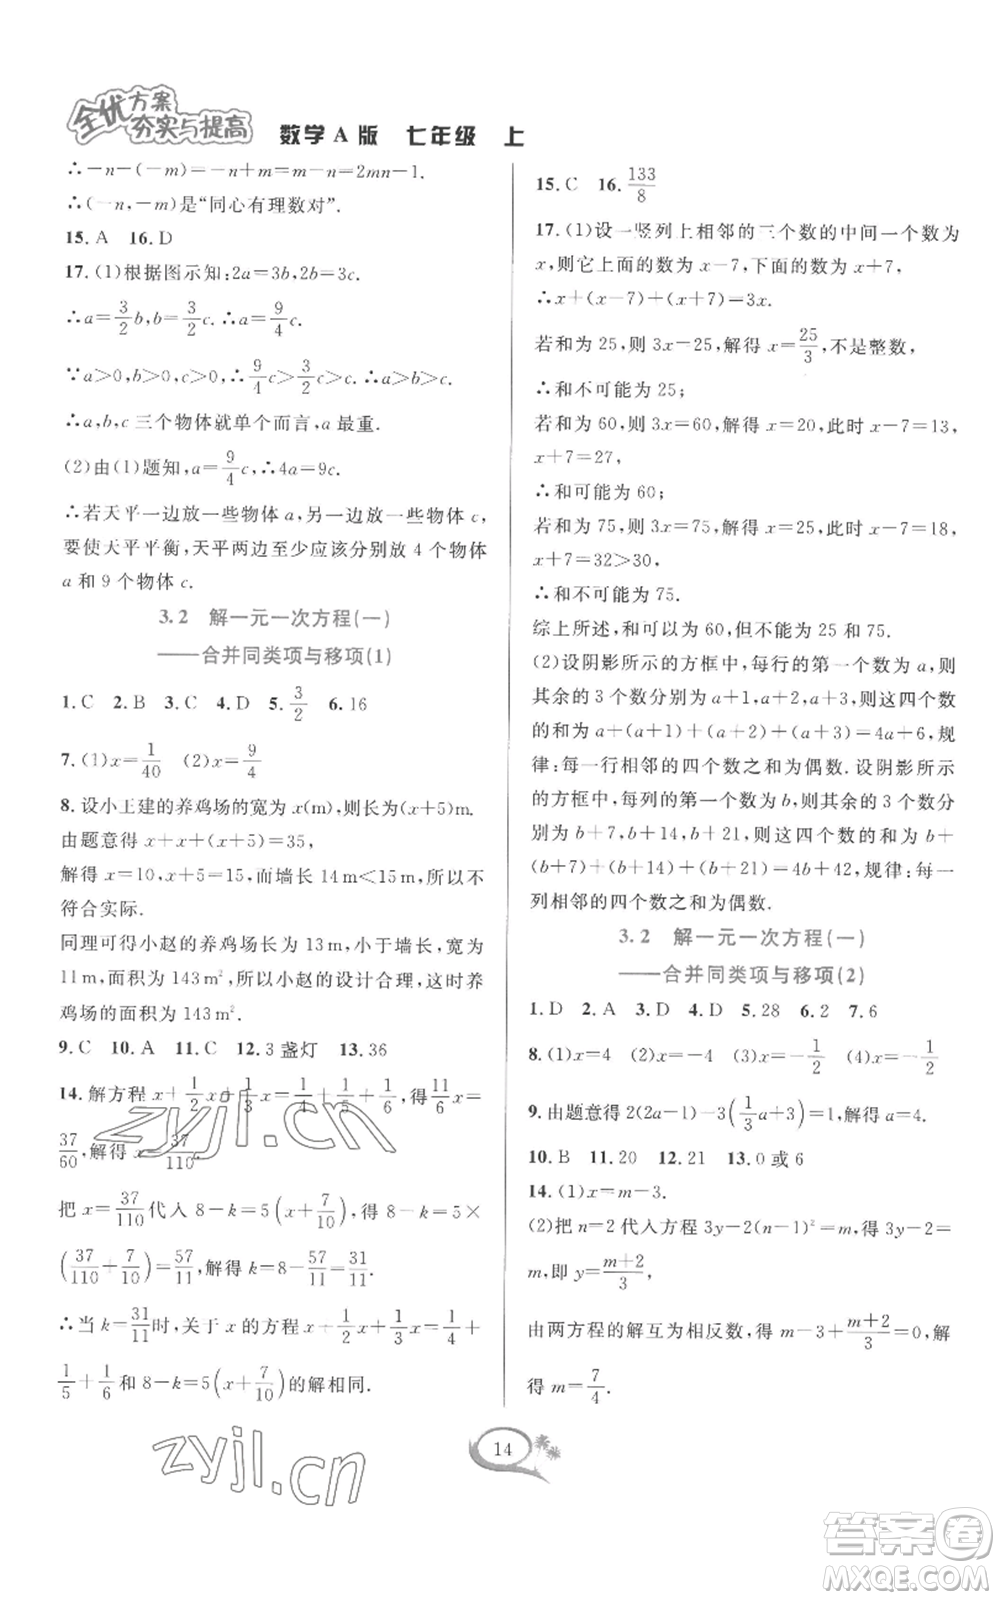 全优方案
夯实与提高
数学A版 七年级 上
∴-n-(-m)=-n+m=m-n=2mn-1.
∴(-n,-m)是“同心有理数对”.
15. A 16. D
17. (1)根据图示知:2a=3b,2b=3c.
∴a=3/2b,b=3/2c.∴a=9/4c.
∵a>0,b>0,c>0,∴9/4c>3/2c>c.∴a>b>c.
∴a,b,c三个物体就单个而言,a最重.
(2)由(1)题知,a=9/4c,∴4a=9c.
∴若天平一边放一些物体a,另一边放一些物体c,
要使天平平衡,天平两边至少应该分别放4个物体
a和9个物体c.
3.2 解一元一次方程(一)
——合并同类项与移项(1)
1. C 2. B 3. C 4. D 5. 3/2 6. 16
7. (1)x=1/40 (2)x=9/4
8. 设小王建的养鸡场的宽为x(m),则长为(x+5)m.
由题意得x+x+(x+5)=35,
解得x=10,x+5=15,而墙长14 m<15 m,所以不
符合实际.
同理可得小赵的养鸡场长为13 m,小于墙长,宽为
11 m,面积为143 m².所以小赵的设计合理,这时养
鸡场的面积为143 m².
9. C 10. A 11. C 12. 3盏灯 13. 36
14. 解方程x+1/2x+1/3x=1/3+1/4+1/5+1/6,得11/6x=
37/60,解得x=37/110.
把x=37/110代入8-k=5(x+7/10),得8-k=5×
(37/110+7/10)=57/11,解得k=8-57/11=31/11.
∴当k=31/11时,关于x的方程x+1/2x+1/3x=1/3+1/4+
1/5+1/6和8-k=5(x+7/10)的解相同.
15. C 16. 133/8
17. (1)设一竖列上相邻的三个数的中间一个数为
x,则它上面的数为x-7,下面的数为x+7,
∴x+(x-7)+(x+7)=3x.
若和为25,则3x=25,解得x=25/3,不是整数,
∴和不可能为25;
若和为60,则3x=60,解得x=20,此时x-7=13,
x+7=27,
∴和可能为60;
若和为75,则3x=75,解得x=25,此时x-7=18,
x+7=32>30,
∴和不可能为75.
综上所述,和可以为60,但不能为25和75.
(2)设阴影所示的方框中,每行的第一个数为a,则
其余的3个数分别为a+1,a+2,a+3,则这四个数
的和为a+(a+1)+(a+2)+(a+3)=4a+6,规
律:每一行相邻的四个数之和为偶数.设阴影所示
的方框中,每列的第一个数为b,则其余的3个数分
别为b+7,b+14,b+21,则这四个数的和为b+
(b+7)+(b+14)+(b+21)=4b+42,规律:每一
列相邻的四个数之和为偶数.
3.2 解一元一次方程(一)
——合并同类项与移项(2)
1. D 2. A 3. D 4. D 5. 28 6. 2 7. 6
8. (1)x=4 (2)x=-4 (3)x=-1/2 (4)x=-1/2
9. 由题意得2(2a-1)-3(1/3a+3)=1,解得a=4.
10. B 11. 20 12. 21 13. 0或6
14. (1)x=m-3.
(2)把n=2代入方程3y-2(n-1)²=m,得3y-2=
m,即y=m+2/3,
由两方程的解互为相反数,得m-3+m+2/3=0,解
得m=7/4.
14
zyjl.cn
zyjl.cn
答案卷
MXQE.COM